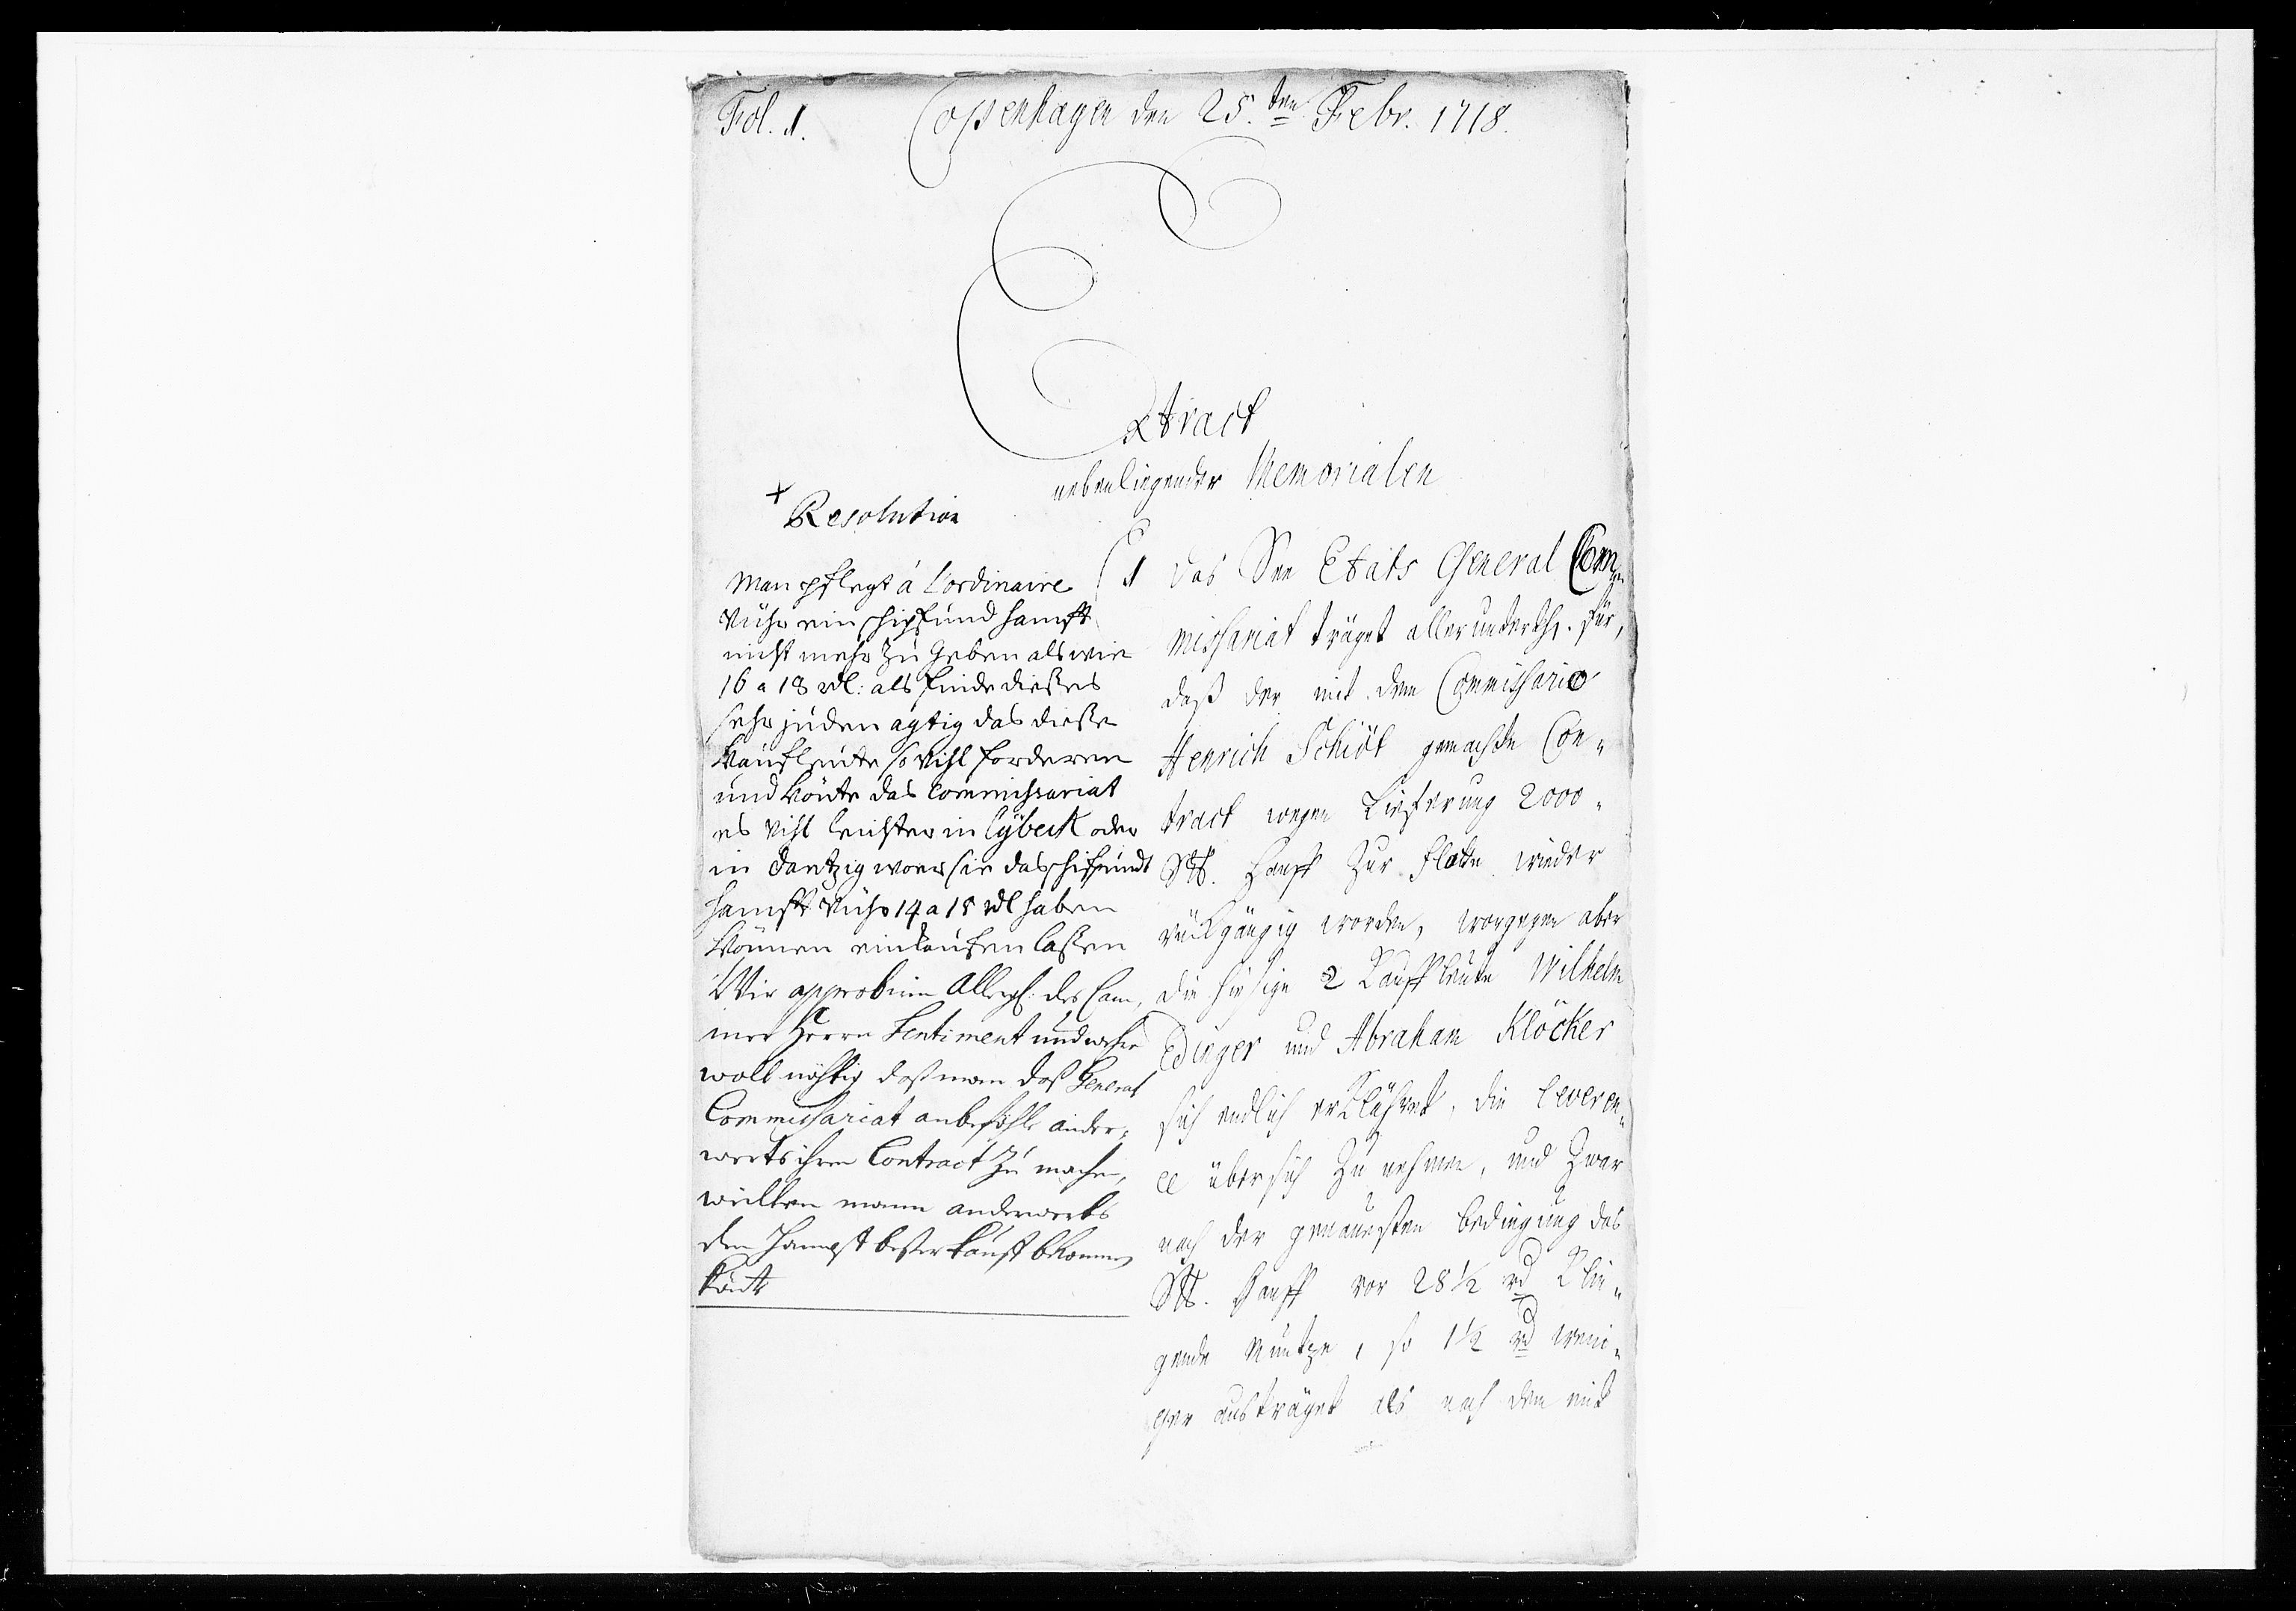 Fol. 1.
Copenhagen den 25.ten Febr. 1718.
Extract
nebenliegender Memorialen
+
Resolution
Man pflegt á l'ordinaire
vühr ein schipfund hampft
nicht mehr zu geben als wie
16 a 18 rdl: als finde dießes
sehr juden agtig das dieße
Kaufleute so vihl forderen
und könte das Commissariat
es vihl leichter in Lybeck oder
in Dantzig woer sie das schifpundt
hampft vühr 14 a 15 rdl haben
können einkaufen laßen
Wir approbiren Allergn: des Cam,
mer Herrn Sentiment und wehre
woll nöhtig daß man daß General
Commissariat anbefohle ander¬
werts ihren Contract zu machen,
weillen mann anderwerts
den Hampft beßer kauft bekommen
könte
1 Das See Etats General Com¬
missariat träget allerunterthg. für,
daß der mit dem Commissario
Henrich Schiöt gemachte Con¬
tract wegen Lieferung 2000
S℔. Hanff zur Flotte wieder
rückgängig worden, worgegen aber
die hiesige 2 Kauffleute Wilhelm
Edinger und Abraham Klöcker
sich endlich erklähret, die leveren¬
ce über sich zu nehmen, und zwar
nach der genauesten bedingung das
S℔. Hanff vor 28½ rd klin¬
gende Müntze, so 1½ rd weni¬
ger austräget als nach dem mit